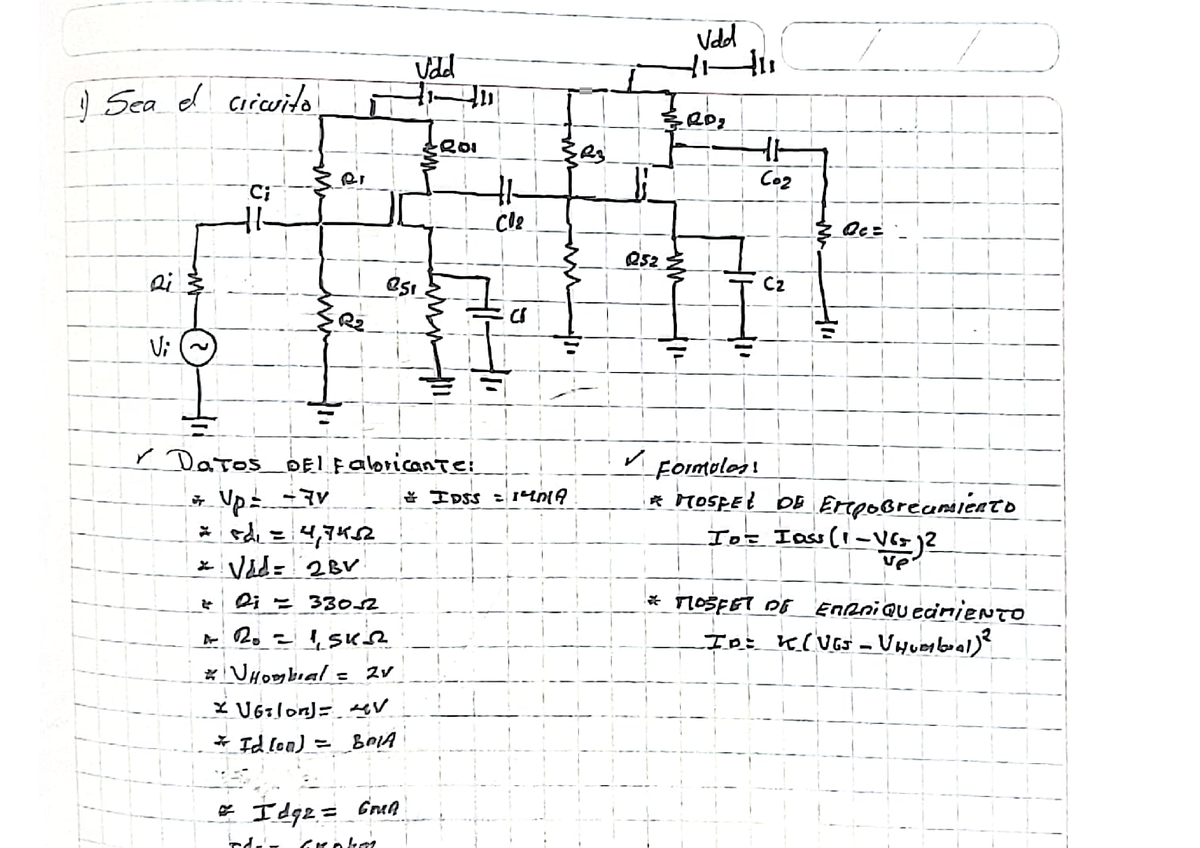 Vdd
Vdd
1) Sea el circuito
RD2
RD1
R3
R1
Ci
Co2
CI2
Rc =
Ri
RS1
RS2
C2
R2
C1
Vi
✓ Datos del Fabricante:
* Vp = -7V
* IDSS = 14mA
* rd1 = 4,7KΩ
* Vdd = 28V
* Ri = 330Ω
* Ro = 1,5KΩ
* VHombral = 2V
* VGS(on) = 4V
* Id(on) = 8mA
* Idq2 = 6mA
✓ Formulas:
* MOSFET DE Empobrecimiento
ID = IDSS(1 - VGS/VP)2
* MOSFET DE ENRRIQUECIMIENTO
ID = K(VGS - VHumbral)2